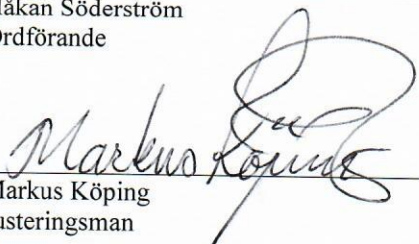 Håkan Söderström
Ordförande
Markus Köping
Markus Köping
Justeringsman